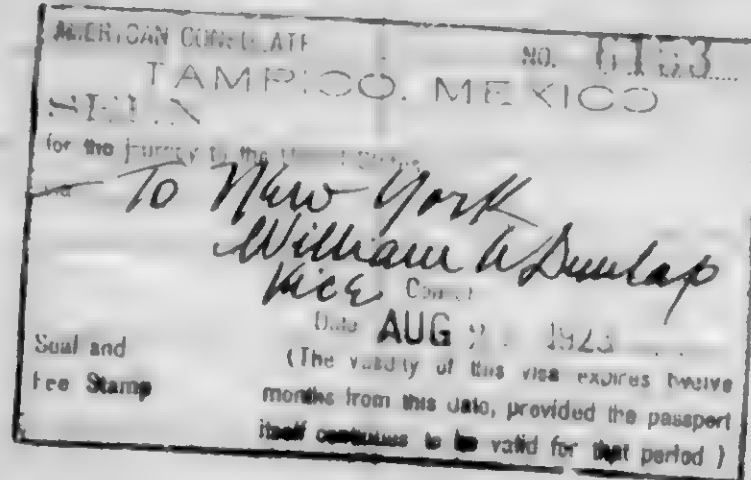 AMERICAN CONSULATE
NO.
TAMPICO, MEXICO
SEEN
for the journey to the United States
To New York
William W Dunlap
Vice Consul
Date AUG 192
Seal and
Fee Stamp
(The validity of this visa expires twelve
months from this date, provided the passport
itself continues to be valid for that period)